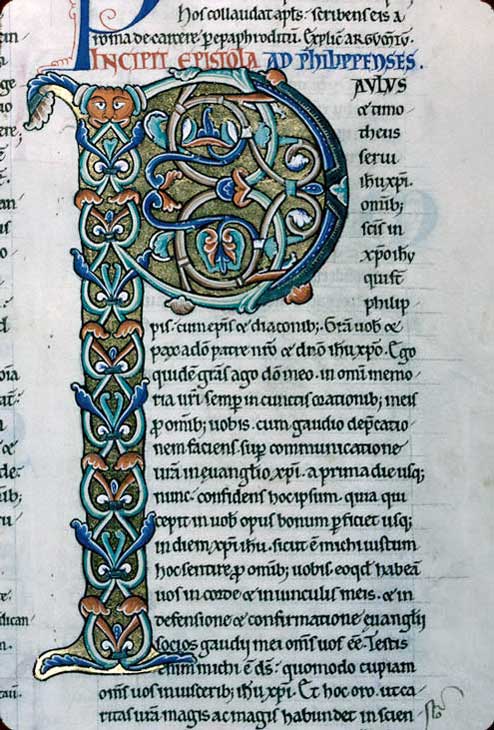 hos collaudat apls. scribens eis a
roma de carcere. p epaphroditu. Explic argvmtv.
Incipit epistola ad philippenses.
PAVLVS
et timo
theus
serui
ihu xpi.
omib;
scis in
xpo ihu
qui st
philip
pis. cum epis et diaconib;. Gra uob et
pax a do patre nro et dno ihu xpo. Ego
quide gras ago do meo. in omi memo
ria uri semp in cunctis orationib; meis
p omib; uobis. cum gaudio depcatio
nem faciens. sup communicatione
ura in euanglio xpi. a prima die usq;
nunc. confidens hoc ipsum. quia qui
cepit in uob opus bonum pficiet usq;
in diem xpi ihu. sicut e michi iustum
hoc sentire p omib; uobis. eo qd habea
uos in corde et in uinculis meis. et in
defensione et confirmatione euanglii
socios gaudii mei oms uos ee. Testis
enim michi e ds. quomodo cupiam
oms uos in uiscerib; ihu xpi. Et hoc oro. ut ca
ritas ura magis ac magis habundet in scien